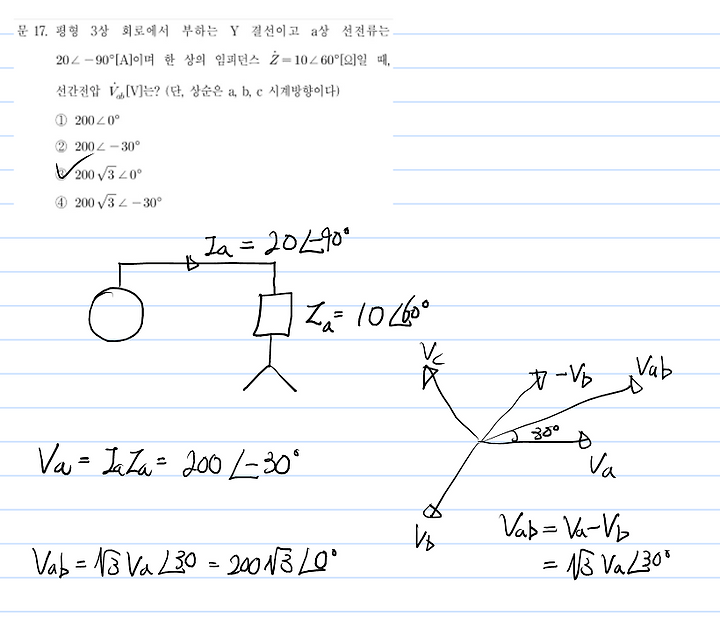 문 17. 평형 3상 회로에서 부하는 Y 결선이고 a상 선전류는
20∠-90°[A]이며 한 상의 임피던스 Ż=10∠60°[Ω]일 때,
선간전압 V̇ab[V]는? (단, 상순은 a, b, c 시계방향이다)
① 200∠0°
② 200∠-30°
③ 200√3∠0°
④ 200√3∠-30°
Ia = 20∠-90°
Za = 10∠60°
Vc
-Vb
Vab
30°
Va
Vb
Va = IaZa = 200∠-30°
Vab = Va-Vb
= √3 Va∠30°
Vab = √3 Va∠30 = 200√3∠0°